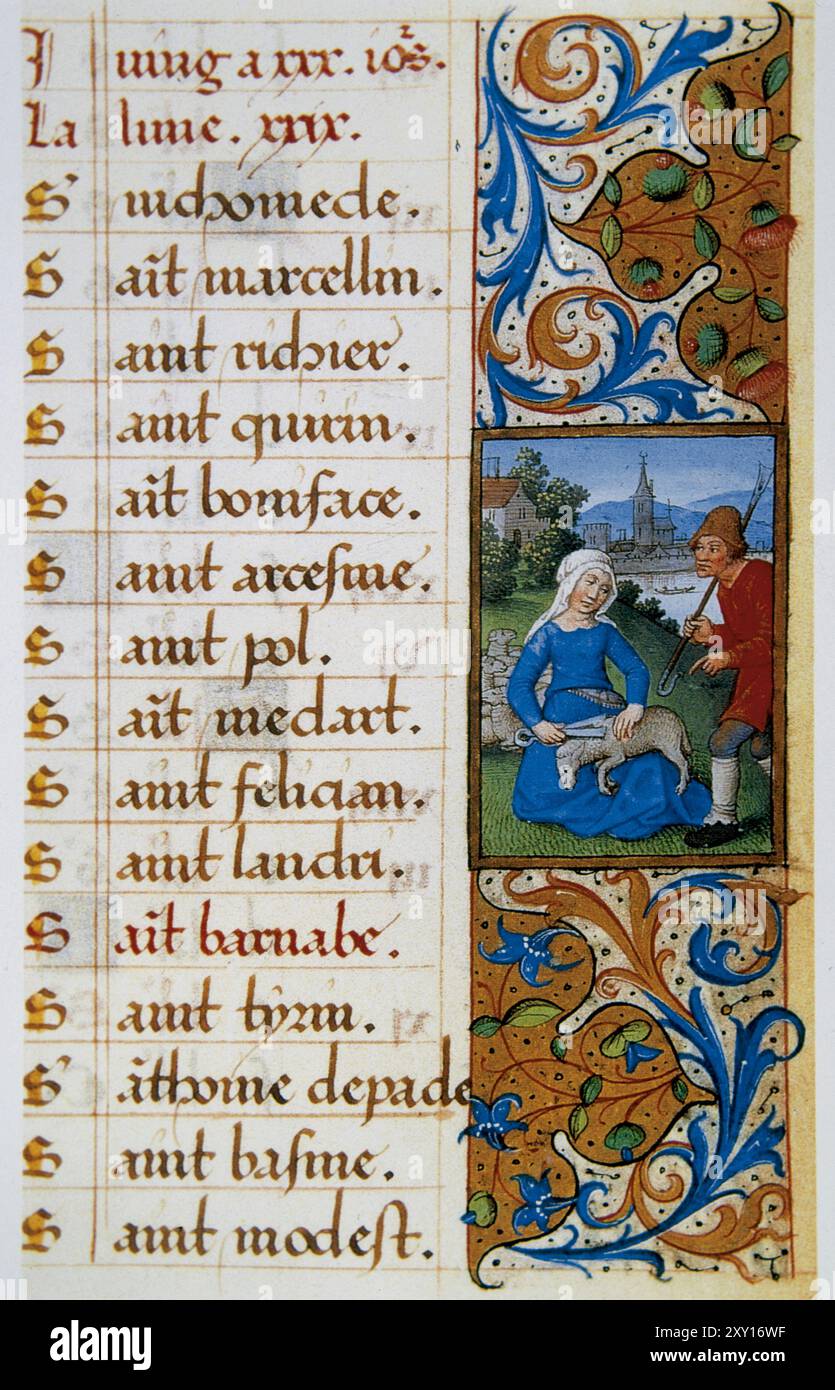 Juing a xxx. iors.
La lune. xxix.
S' nichomede.
Sait marcellin.
Saint richier.
Saint quirin.
Sait boniface.
Saint arcesme.
Saint pol.
Sait medart.
Saint felician.
Saint landri.
Sait barnabe.
Saint tyrin.
S' athoine depade
Saint basine.
Saint modest.
alamy
Image ID: 2XY16WF
www.alamy.com